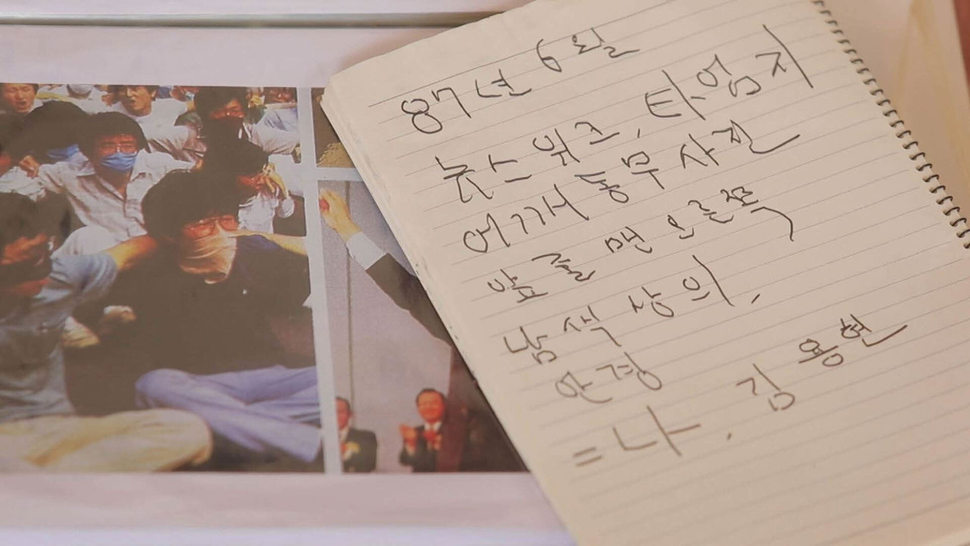 87년 6월
뉴스위크, 타임지
어깨동무 사진
앞줄 맨 오른쪽
남색 상의,
안경
= 나. 김용현